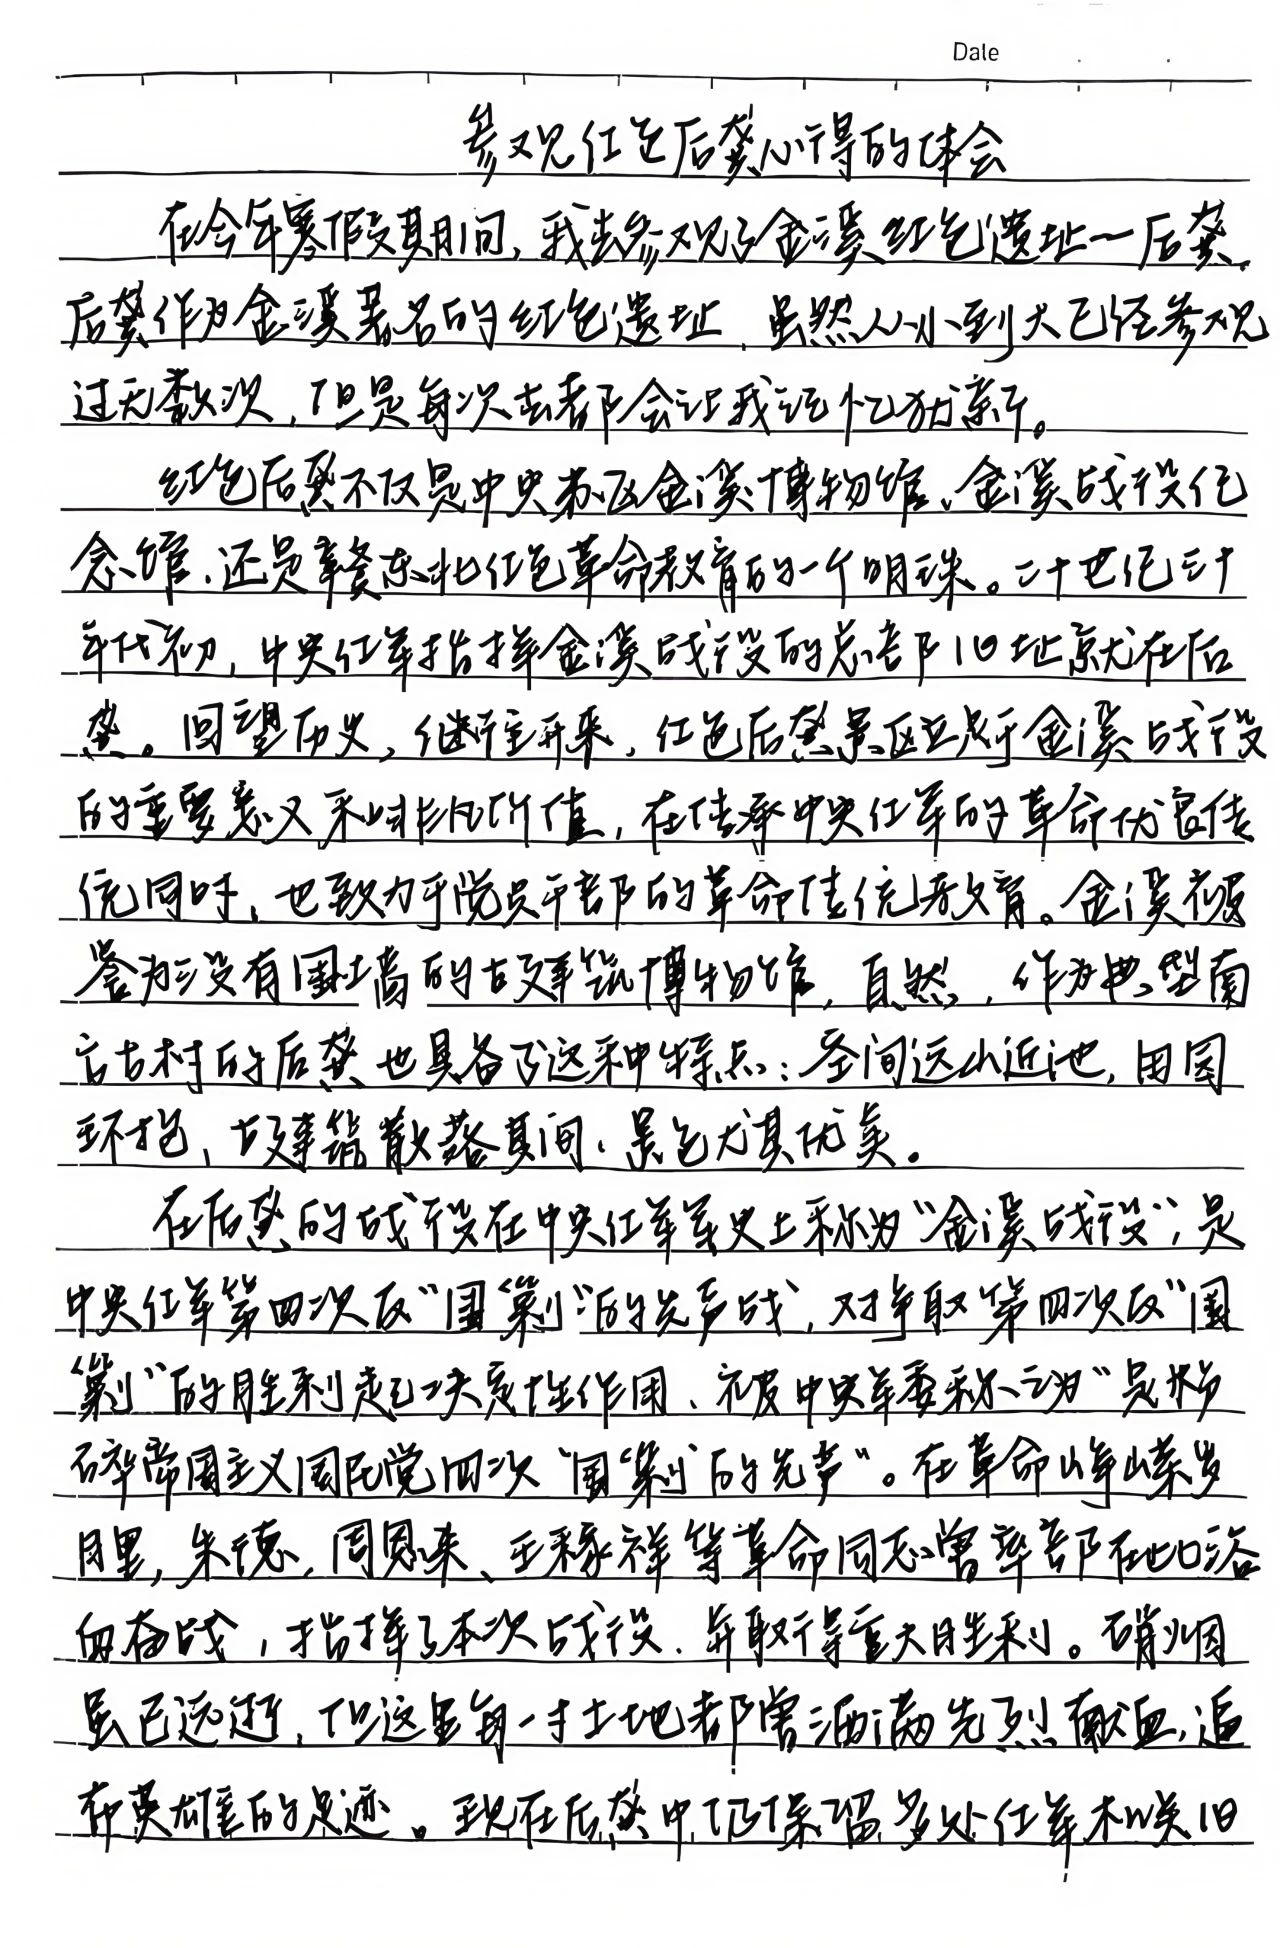 Date
参观红色后龚心得的体会
在今年寒假期间，我去参观了金溪红色遗址—后龚。
后龚作为金溪著名的红色遗址，虽然从小到大已经参观
过无数次，但是每次去都会让我记忆犹新。
红色后龚不仅是中央苏区金溪博物馆、金溪战役纪
念馆，还是赣东北红色革命教育的一个明珠。二十世纪三十
年代初，中央红军指挥金溪战役的总部旧址就在后
龚。回望历史，继往开来，红色后龚景区立足于金溪战役
的重要意义和非凡价值，在传承中央红军的革命优良传
统同时，也致力于党员干部的革命传统教育。金溪被
誉为没有围墙的古建筑博物馆，自然，作为典型南
方古村的后龚也具备了这种特点：空间远山近池，田园
环抱，古建筑散落其间，景色尤其优美。
在后龚的战役在中央红军军史上称为“金溪战役”，是
中央红军第四次反“围“剿”的先声战，对争取第四次反“围
“剿”的胜利起了决定性作用，被中央军委称之为“是粉
碎帝国主义国民党四次“围“剿”的先声”。在革命峥嵘岁
月里，朱德，周恩来、王稼祥等革命同志曾率部在此浴
血奋战，指挥了本次战役，并取得重大胜利。硝烟
虽已远逝，但这里每一寸土地都曾洒满先烈献血，遍
布英雄的足迹。现在后龚中仍保留多处红军相关旧